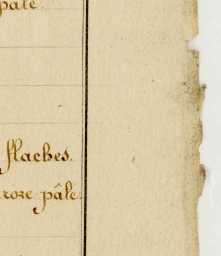 pale.
flaches.
roze pâle.